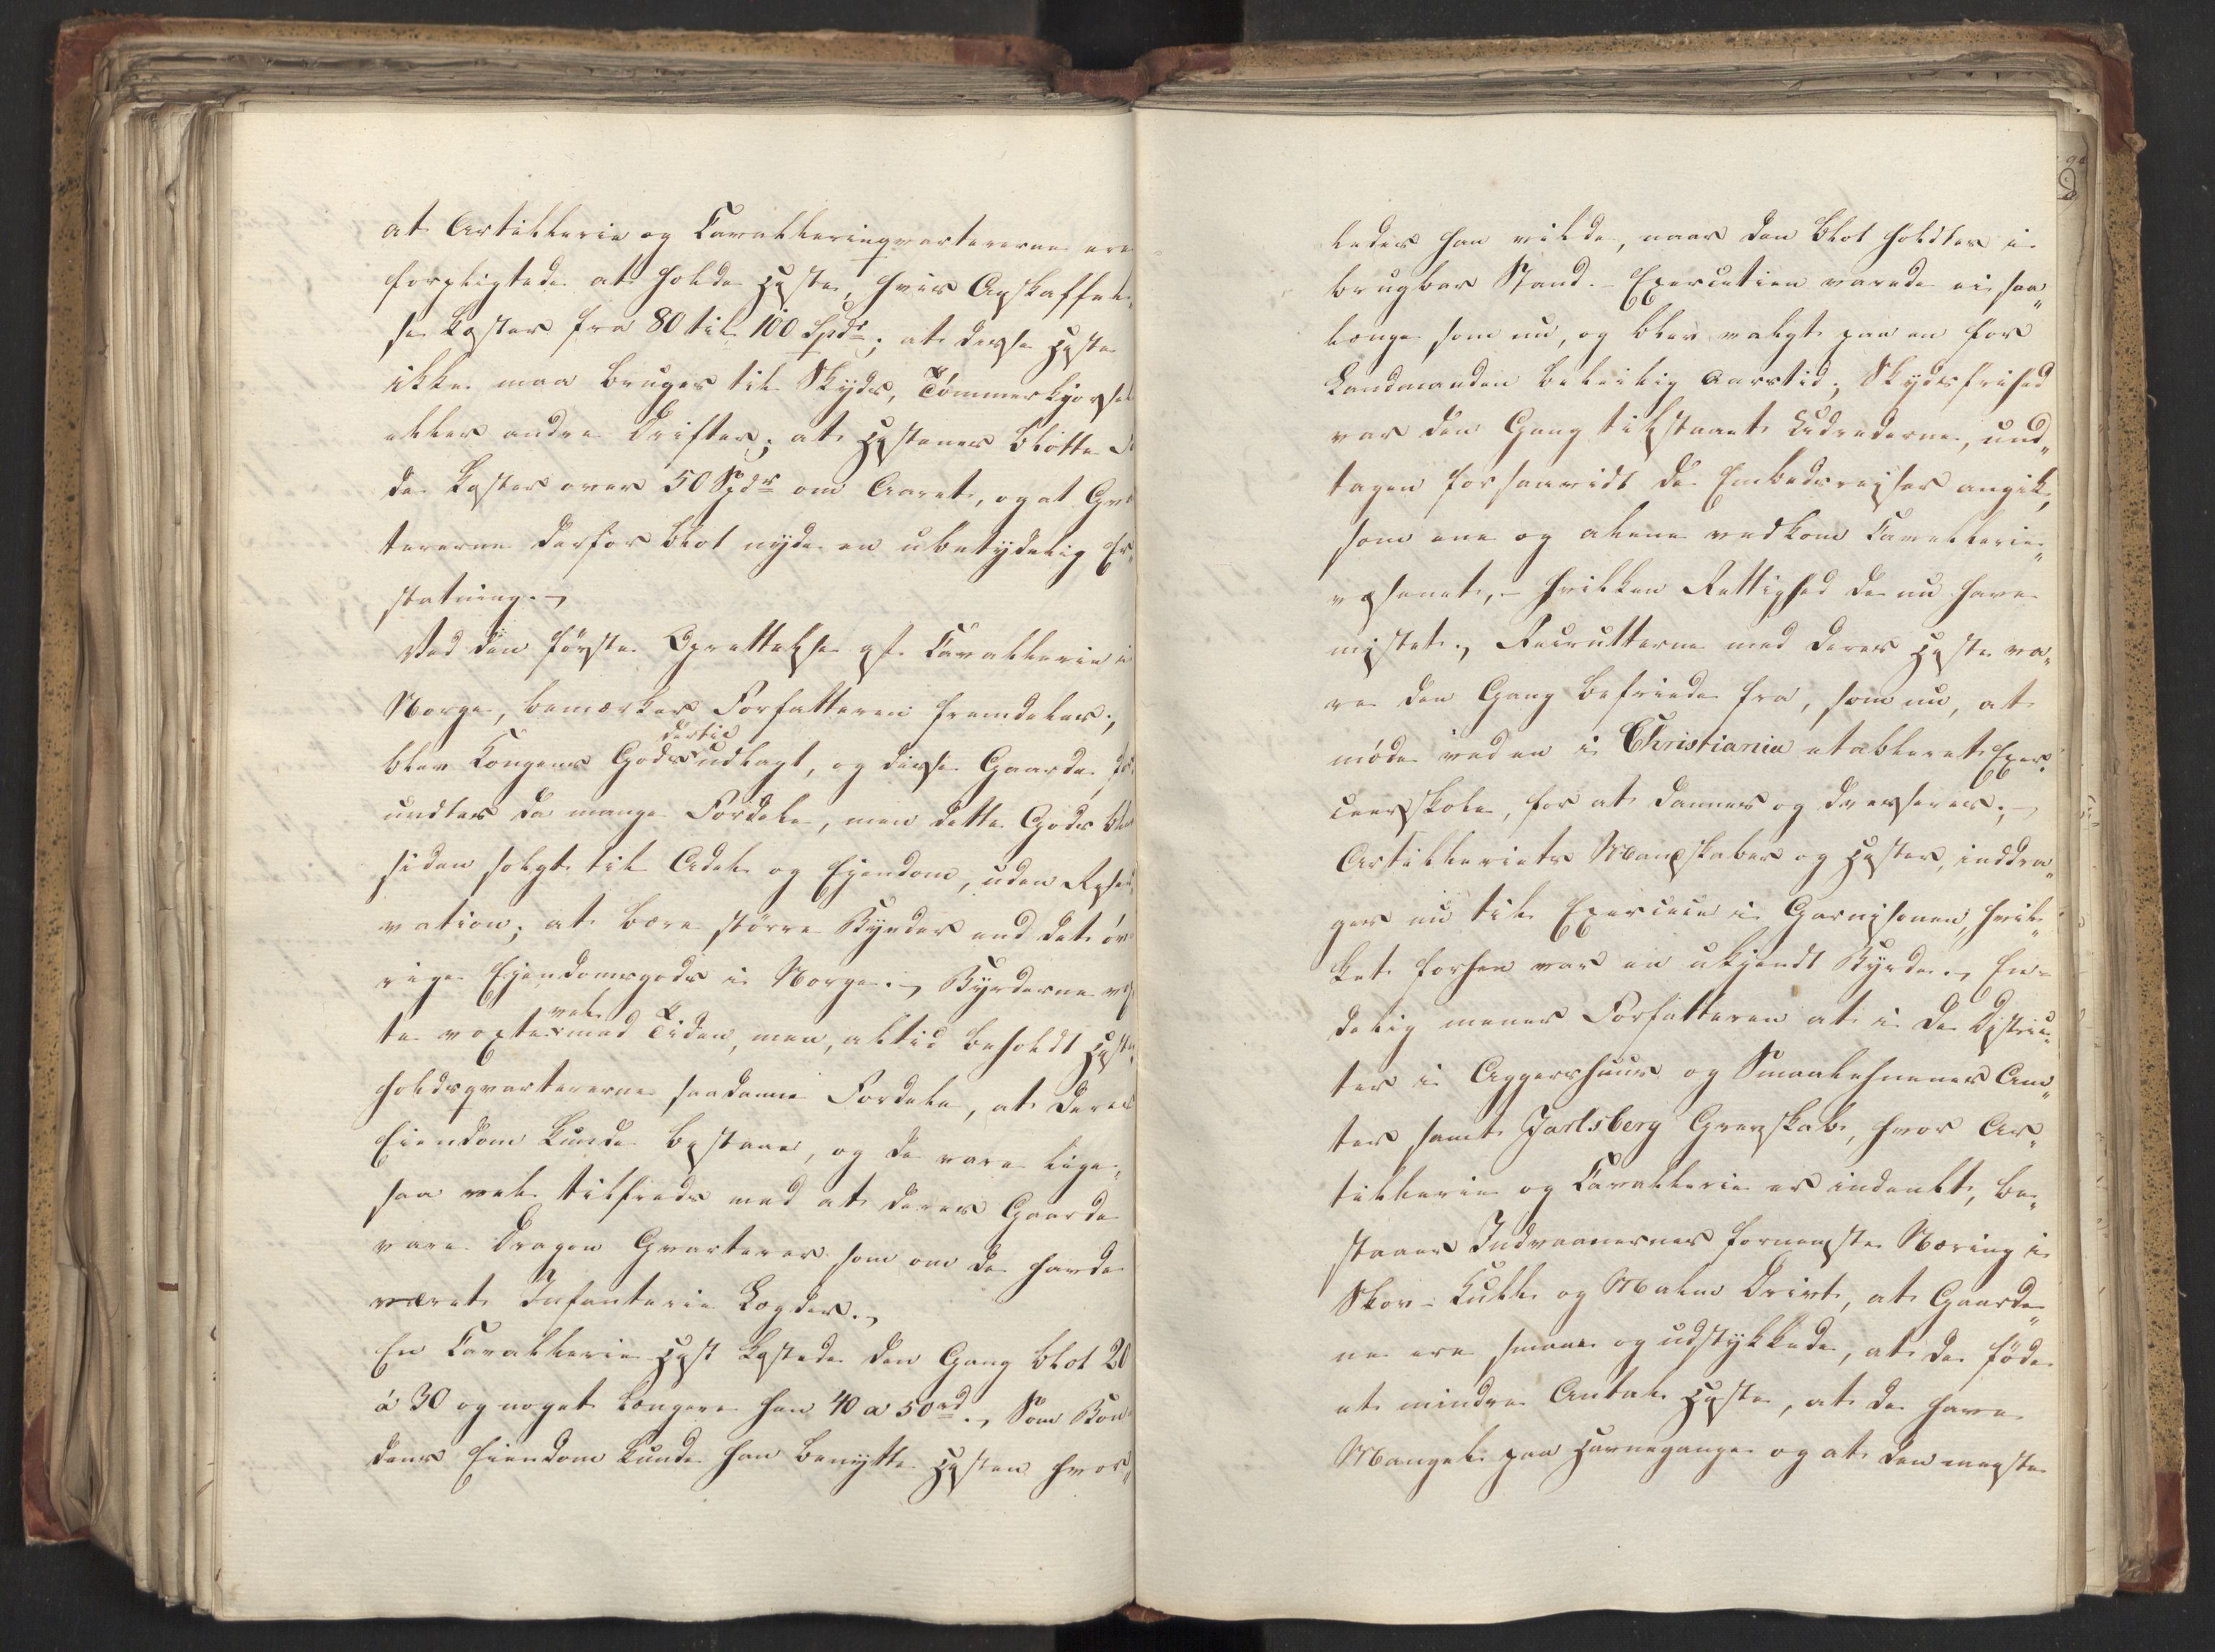 at Artillerie og Cavalleriequartererne ere
forpligtede at holde Heste, hvis Anskaffel„
se koster fra 80 til 100 Spdr; at disse Heste
ikke maa bruges til Skyds, Tømmerkjørsel
eller andre Drifter; at Hestenes blotte
de koster over 50 Spdr om Aaret, og at Qvar
tererne derfor blot nyde en ubetydelig Er„
statning.
Ved den første Oprettelse af Cavallerie i
Norge, bemærker Forfatteren fremdeles;
dertil
blev Kongens Gods udlagt, og disse Gaarde for
undtes da mange Fordele, men dette Gods blev
siden solgt til Adel og Ejendom, uden Reser
vation; at bære større Byrder end det øv
rige Ejendomsgods i Norge. Byrderne
vel
te voxte med Tiden, men, altid beholdt Heste
holdsqvartererne saadanne Fordele, at deres
Eiendom kunde bestaae, og de vare lige„
saa vel tilfreds med at deres Gaarde
vare Dragon Qvarterer som om de havde
været Infanterie Lægder.
En Cavallerie Hest kostede den Gang blot 20
à 30 og noget længere hen 40 a 50 rd. Som Bon
dens Eiendom kunde han benytte Hesten hvor„
ledes han vilde, naar den blot holdtes i
brugbar Stand. - Exercutien varede ei saa„
længe som nu, og blev valgt paa en for
Landmanden beleilig Aarstid; Skydsfrihed
var den Gang tilstaaet Ludrederne, und„
tagen forsaavidt de Embedsreiser angik,
som ene og alene vedkom Cavallerie„
væsenet, - hvilken Rettighed de nu have
mistet. Recrutterne med deres Heste va„
re den Gang befriede fra, som nu, at
møde ved en i Christiania etableret Exer„
ceerskole, for at dannes og dresseres;
Artilleriets Mandskaber og Hester, inddra„
ges nu til Exercice i Garnisonen, hvil„
ket forhen var en ukjendt Byrde. En„
delig mener Forfatteren at i de Distric„
ter i Aggershuus og Smaalehnenes Am„
ter samt Jarlsberg Grevskab, hvor Ar„
tillerie og Cavallerie er indeelt, be„
staaer Indvaanernes fornemste Næring i
Skov- Kull- og Malm Drivt, at Gaarde„
ne ere smaae og udstykkede, at de føde
et mindre Antal Heste, at de have
Mangel paa Havnegange og at den meeste